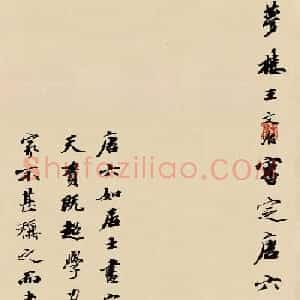 夢樓王文治書定唐六
唐六如居士書
天資既超學力
家不甚稱之而
Shufaziliao.com